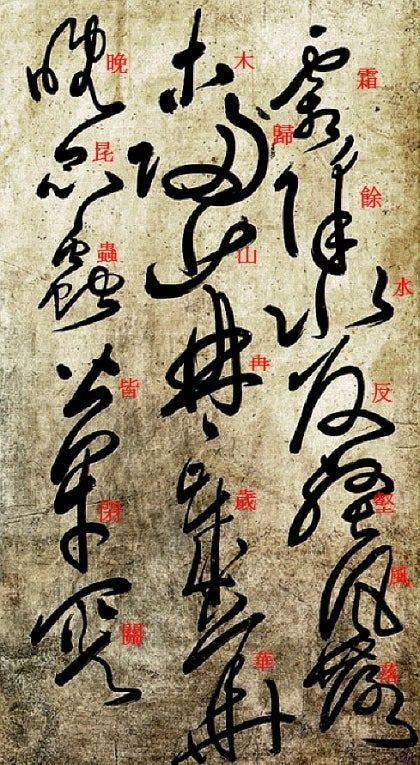 霜餘水反壑風落
木歸山冉歲華
晚昆蟲皆閉關